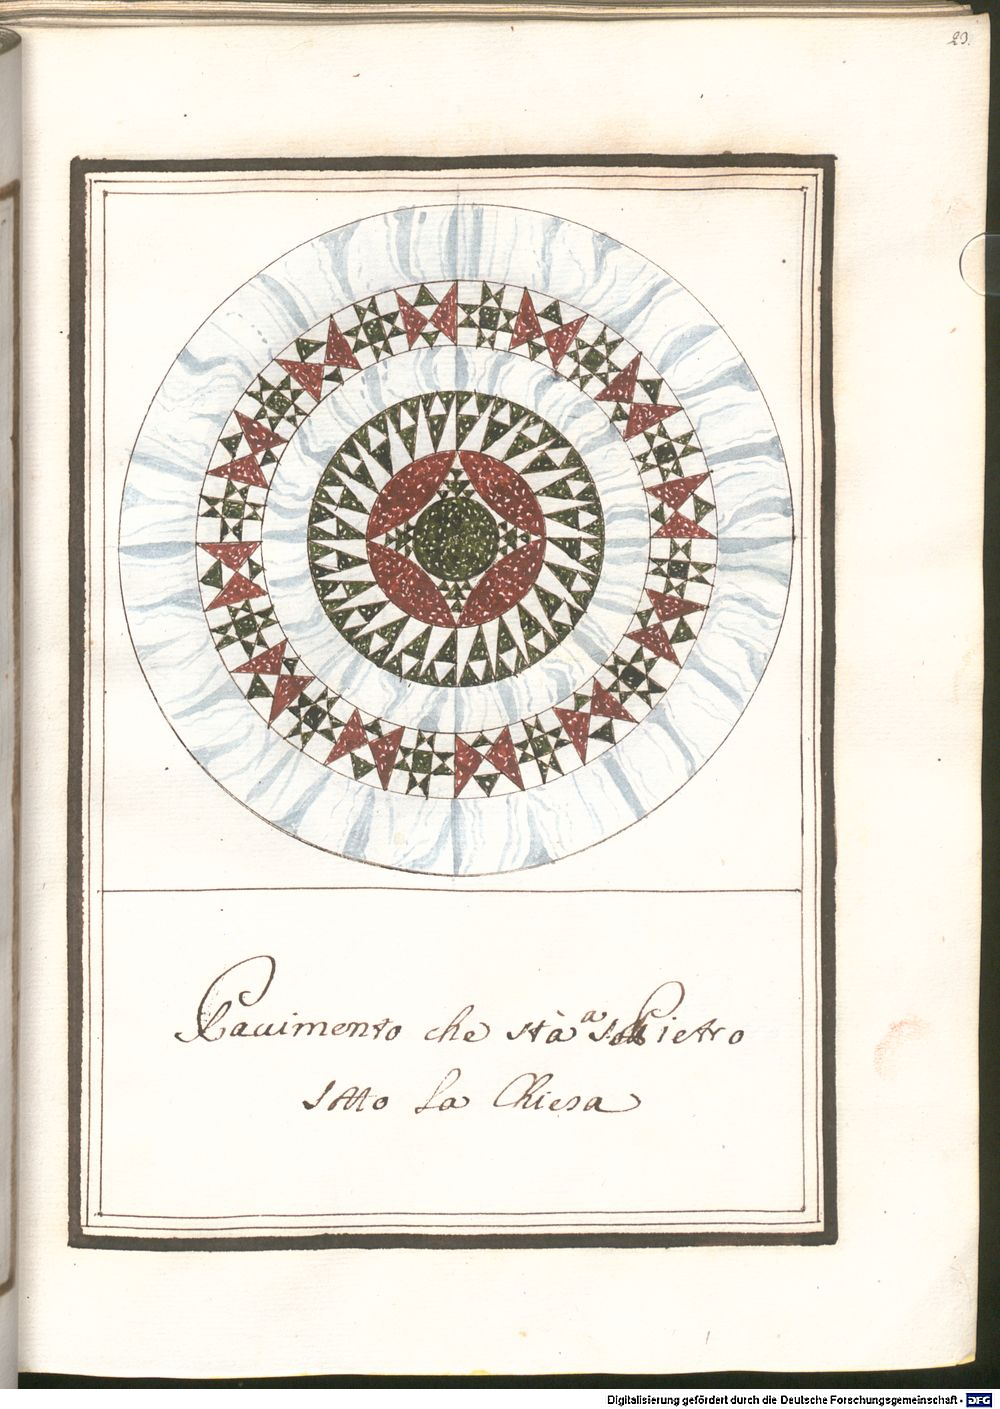 29.
Pauimento che stà a S. Pietro
sotto la Chiesa
Digitalisierung gefördert durch die Deutsche Forschungsgemeinschaft - DFG